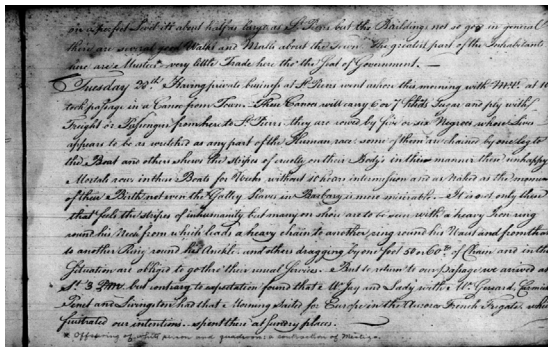 on a perfect Level it's about half as large as St. Piere but the Buildings not so gay in general
there are several good Walks and Malls about the Town. The greatest part of the Inhabitants
are Mustees very little Trade here tho' the Seat of Government. —
Tuesday 20th. Having private business at St. Piers went down this morning with at 10
took passage in a Canoe from Town — These Canoes will carry 6 or 7 Sugar and ply with
Freight or Passengers from here to St. Piers they are rowed by five or six Negroes, whose Lives
appear to be as wretched as any part of the Human race some of them are chained by one leg to
the Boat and others shows the stripes of cruelty on their Body's in this manner these unhappy
Mortals row in these Boats for Weeks without scarce intermission and as Naked as the moment
of their Birth not even the Galley Slaves in Barbary is more miserable. — It is not only these
that feels the stripes of inhumanity but many on shore are to be seen with a heavy Iron ring
round his Neck from which leads a heavy chain to another ring round his Waist and from that
to another Ring round his Anckle, and others dragging by one foot 50 or 60 lb of Chain and in this
Situation are obliged to go thro' their usual Service. — But to return to our passage we arrived at
at 3 P.M. but contrary to expectation found that Mr. Jay and Lady with Mr. Gerard,
and Livingston had that Morning sailed for Europe in the Aurora French Frigate which
frustrated our intentions. spent the at sundry places. —
* Offspring of white person and quadroon; a contraction of Mestizo.